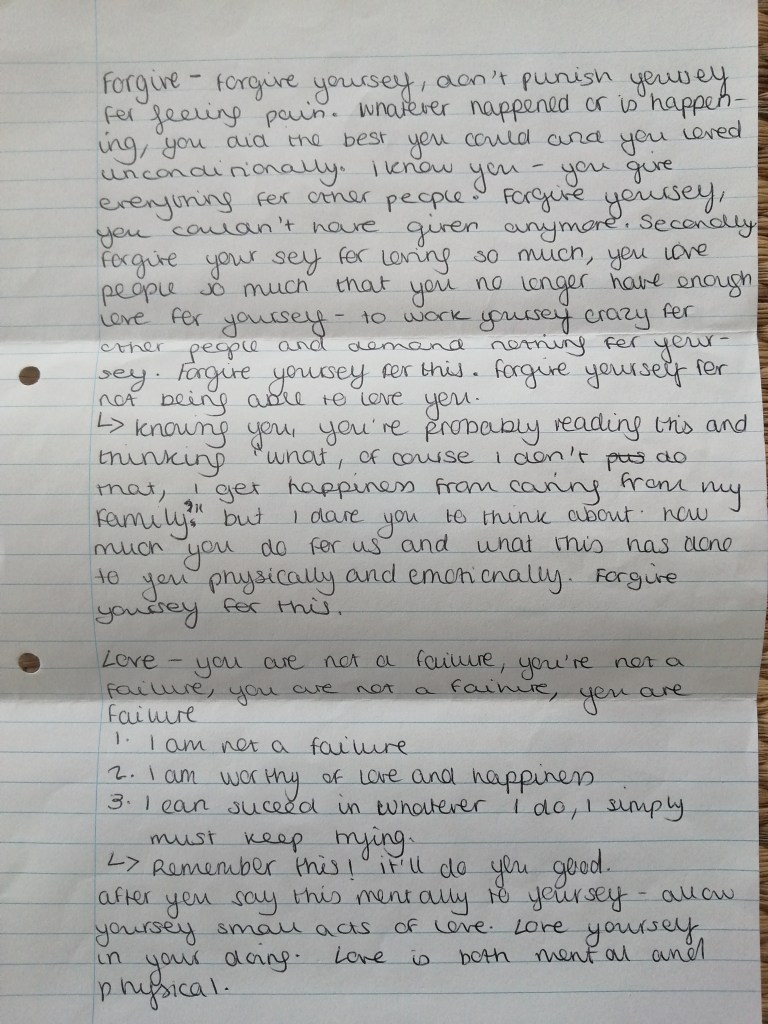 Forgive - forgive yourself, don't punish yourself
for feeling pain. Whatever happened or is happen-
ing, you did the best you could and you loved
unconditionally. I know you - you give
everything for other people. Forgive yourself,
you couldn't have given anymore. Secondly
forgive your self for loving so much, you love
people so much that you no longer have enough
love for yourself - to work yourself crazy for
other people and demand nothing for your-
self. Forgive yourself for this. Forgive yourself for
not being able to love you.
↳ knowing you, you're probably reading this and
thinking "what, of course I don't do
that, I get happiness from caring from my
family." but I dare you to think about how
much you do for us and what this has done
to you physically and emotionally. Forgive
yourself for this.
Love - you are not a failure, you're not a
failure, you are not a failure, you are
failure
1. I am not a failure
2. I am worthy of love and happiness
3. I can suceed in whatever I do, I simply
must keep trying.
↳ Remember this! it'll do you good.
after you say this mentally to yourself - allow
yourself small acts of love. Love yourself
in your doing. Love is both mental and
physical.